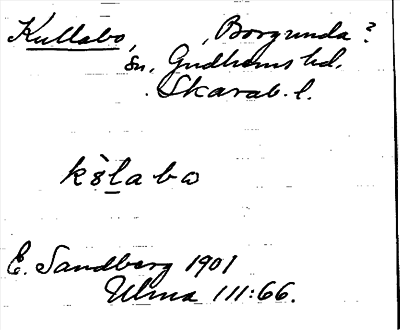 Kullabo, Borgunda?
sn, Gudhems hd.
Skarab. l.
kòlabo
E. Sandberg 1901
Ulma 111:66.